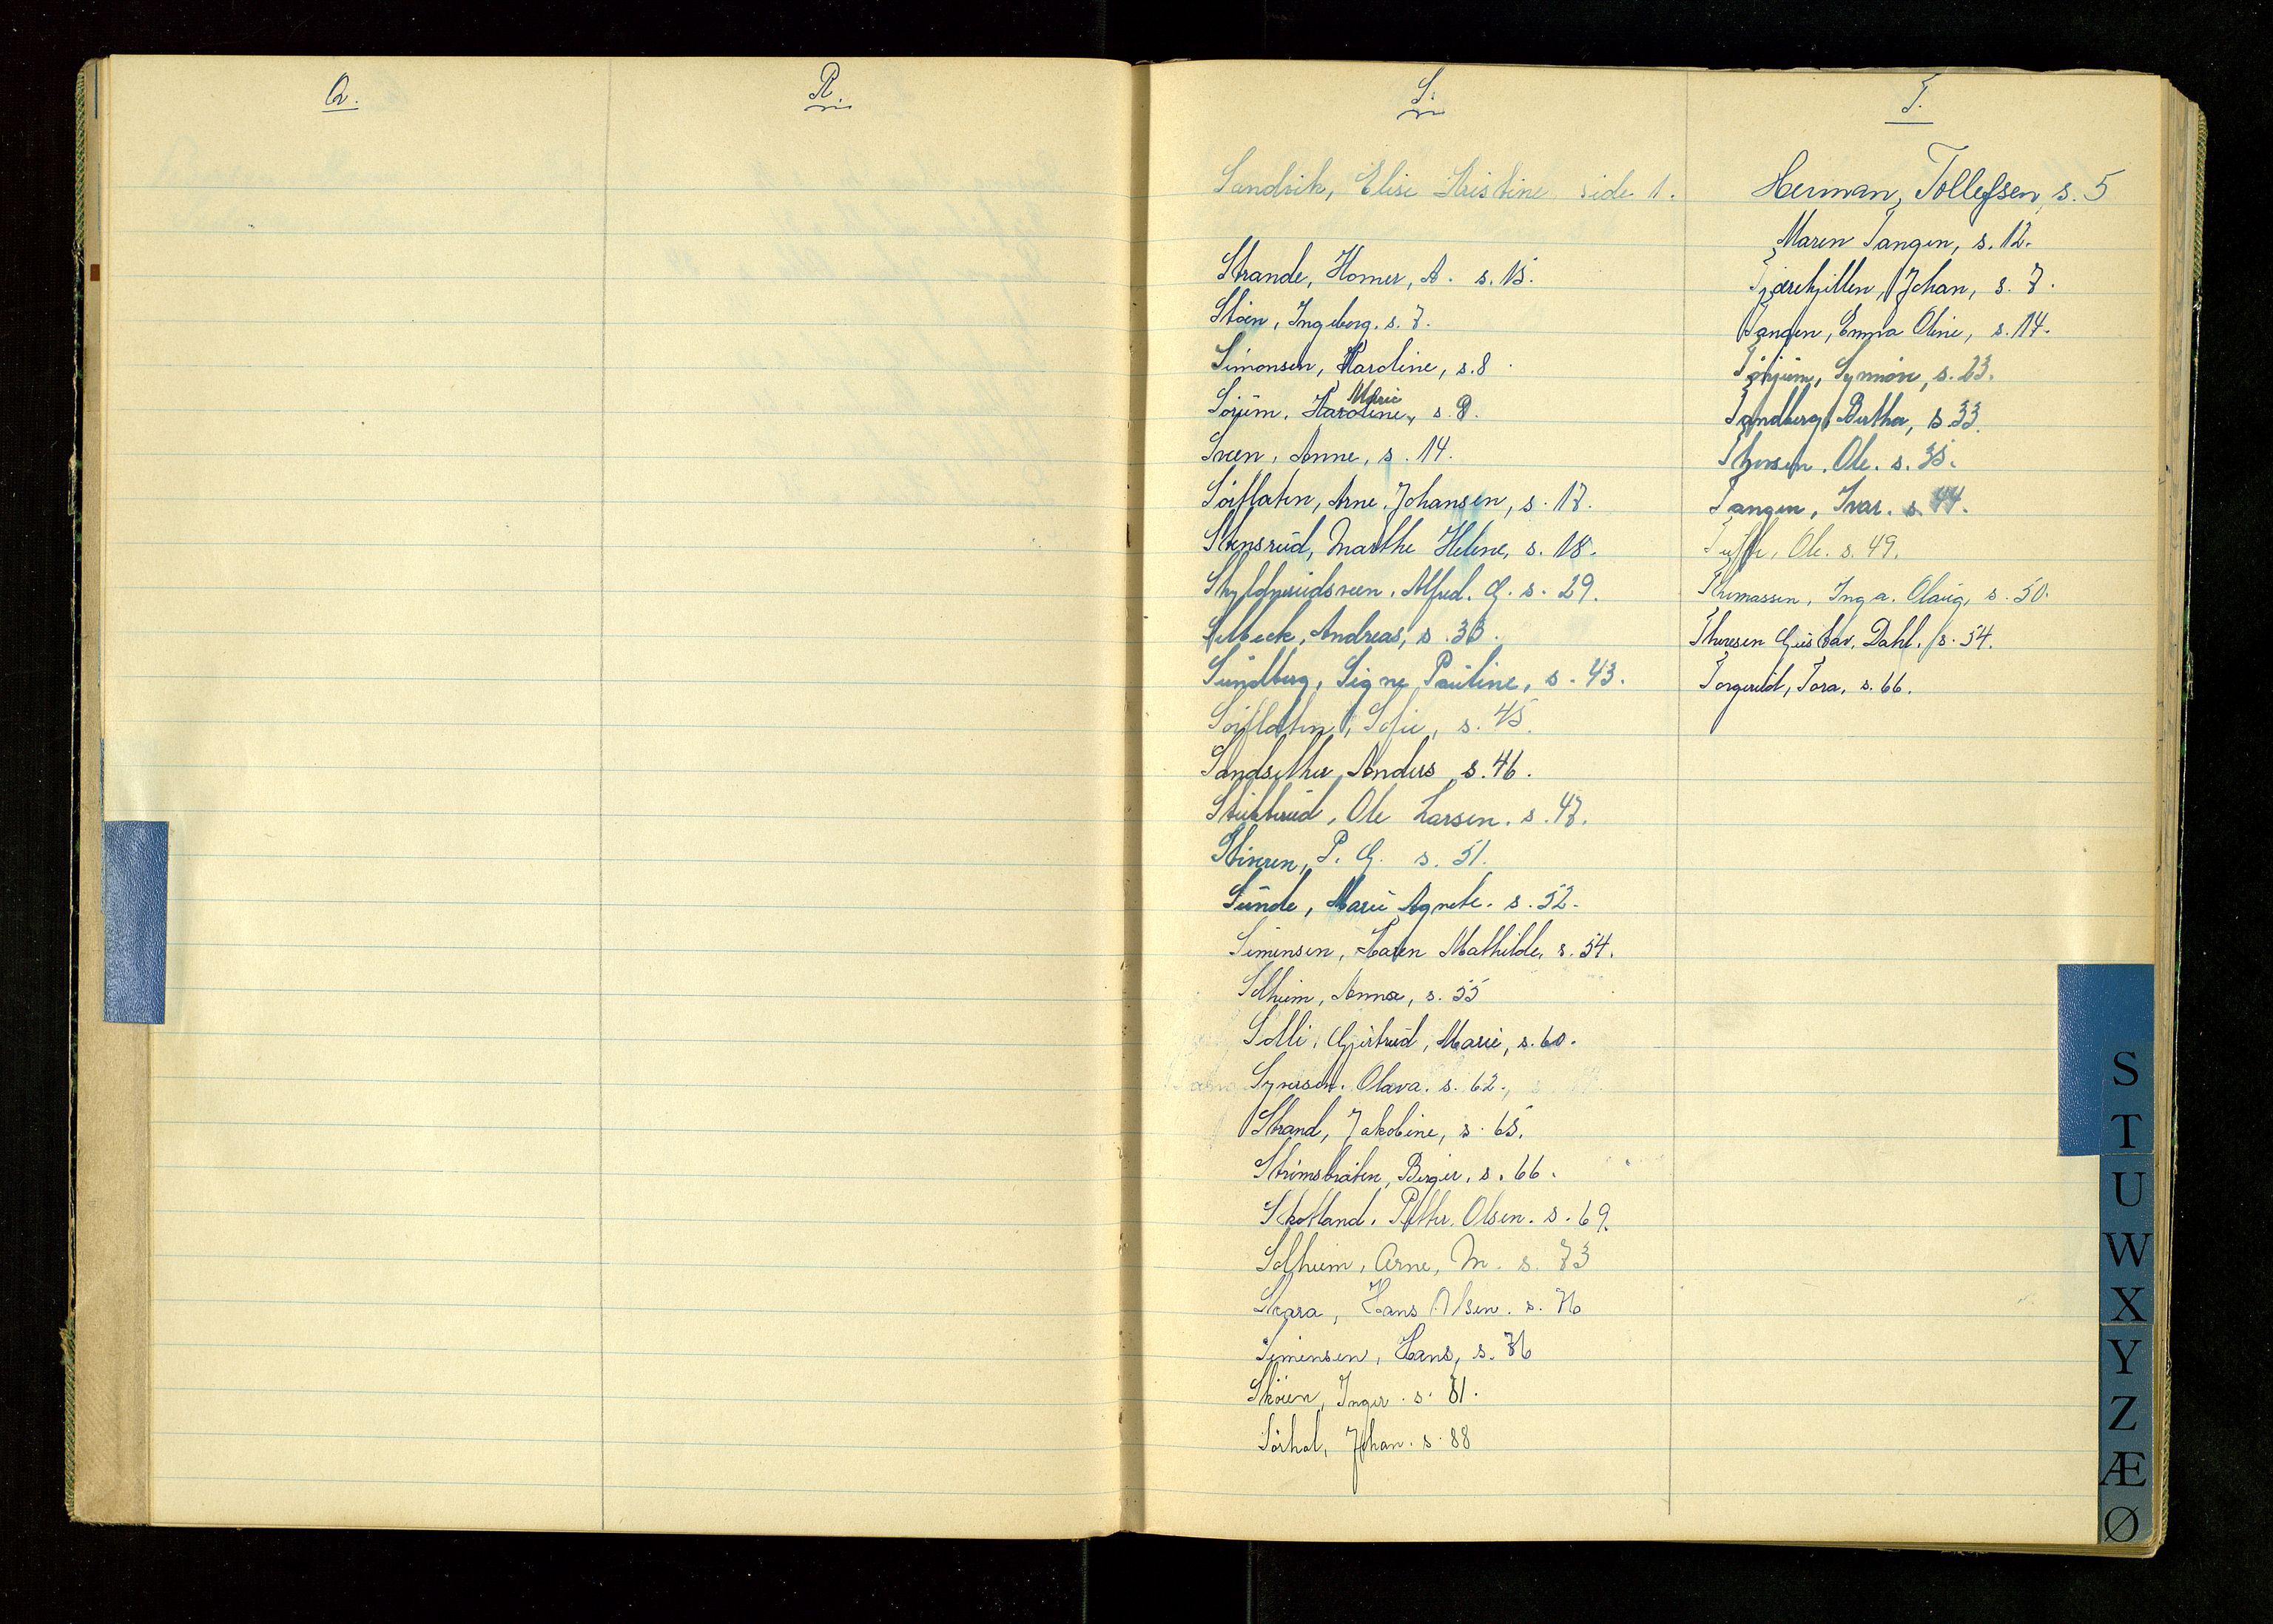 Q.
R.
S.
Sandvik, Elise Kristine side 1.
Strande, Homer, A. s. 15.
Støen, Ingeborg. s. 7.
Simonsen, Karoline, s. 8
Marie
Sorum, Karoline, s. 8.
Sveen, Anne, s. 14.
Sørflaten, Arne Johansen, s. 17.
Stensrud, Marthe Helene, s. 18.
Alfred. G. s. 29.
Selbeck, Andreas, s. 33.
Sundberg, Signe Pauline, s. 43.
Sørflaten, Sofie, s. 45.
Sandsether, Anders s. 46.
Stubberud, Ole Larsen. s. 47.
P. G. s. 51.
Sunde, Marie Agnete. s. 52.
Simensen, Karen Mathilde, s. 54.
Solheim, Anna, s. 55
Solli, Gjertrud, Marie, s. 60.
Syversen. Olava. s. 62.
Strand, Jakobine, s. 65.
Strømsbråten, Birger, s. 66.
Skotland. Petter Olsen. s. 69.
Solheim, Arne, M. s. 73
Skara, Hans Olsen. s. 76
Simensen, Hans, s. 76
Skøien, Inger. s. 81.
Sørhol, Johan. s. 88
T.
Herman, Tollefsen, s. 5
Maren Tangen, s. 12.
Tjærekjillen, Johan, s. 7.
Tangen, Emma Oline, s. 14.
Tønjum, Synnøve, s. 23.
Tandberg, Berthe, s. 33.
Thorsen. Ole. s. 35.
Tangen, Ivar. s. 44.
Tufte, Ole. s. 49.
Thomassen, Inga. Olaug, s. 50.
Thoresen Gustav. Dahl. s. 54.
Torgerud, Tora, s. 66.
S
T
U
W
X
Y
Z
Æ
Ø